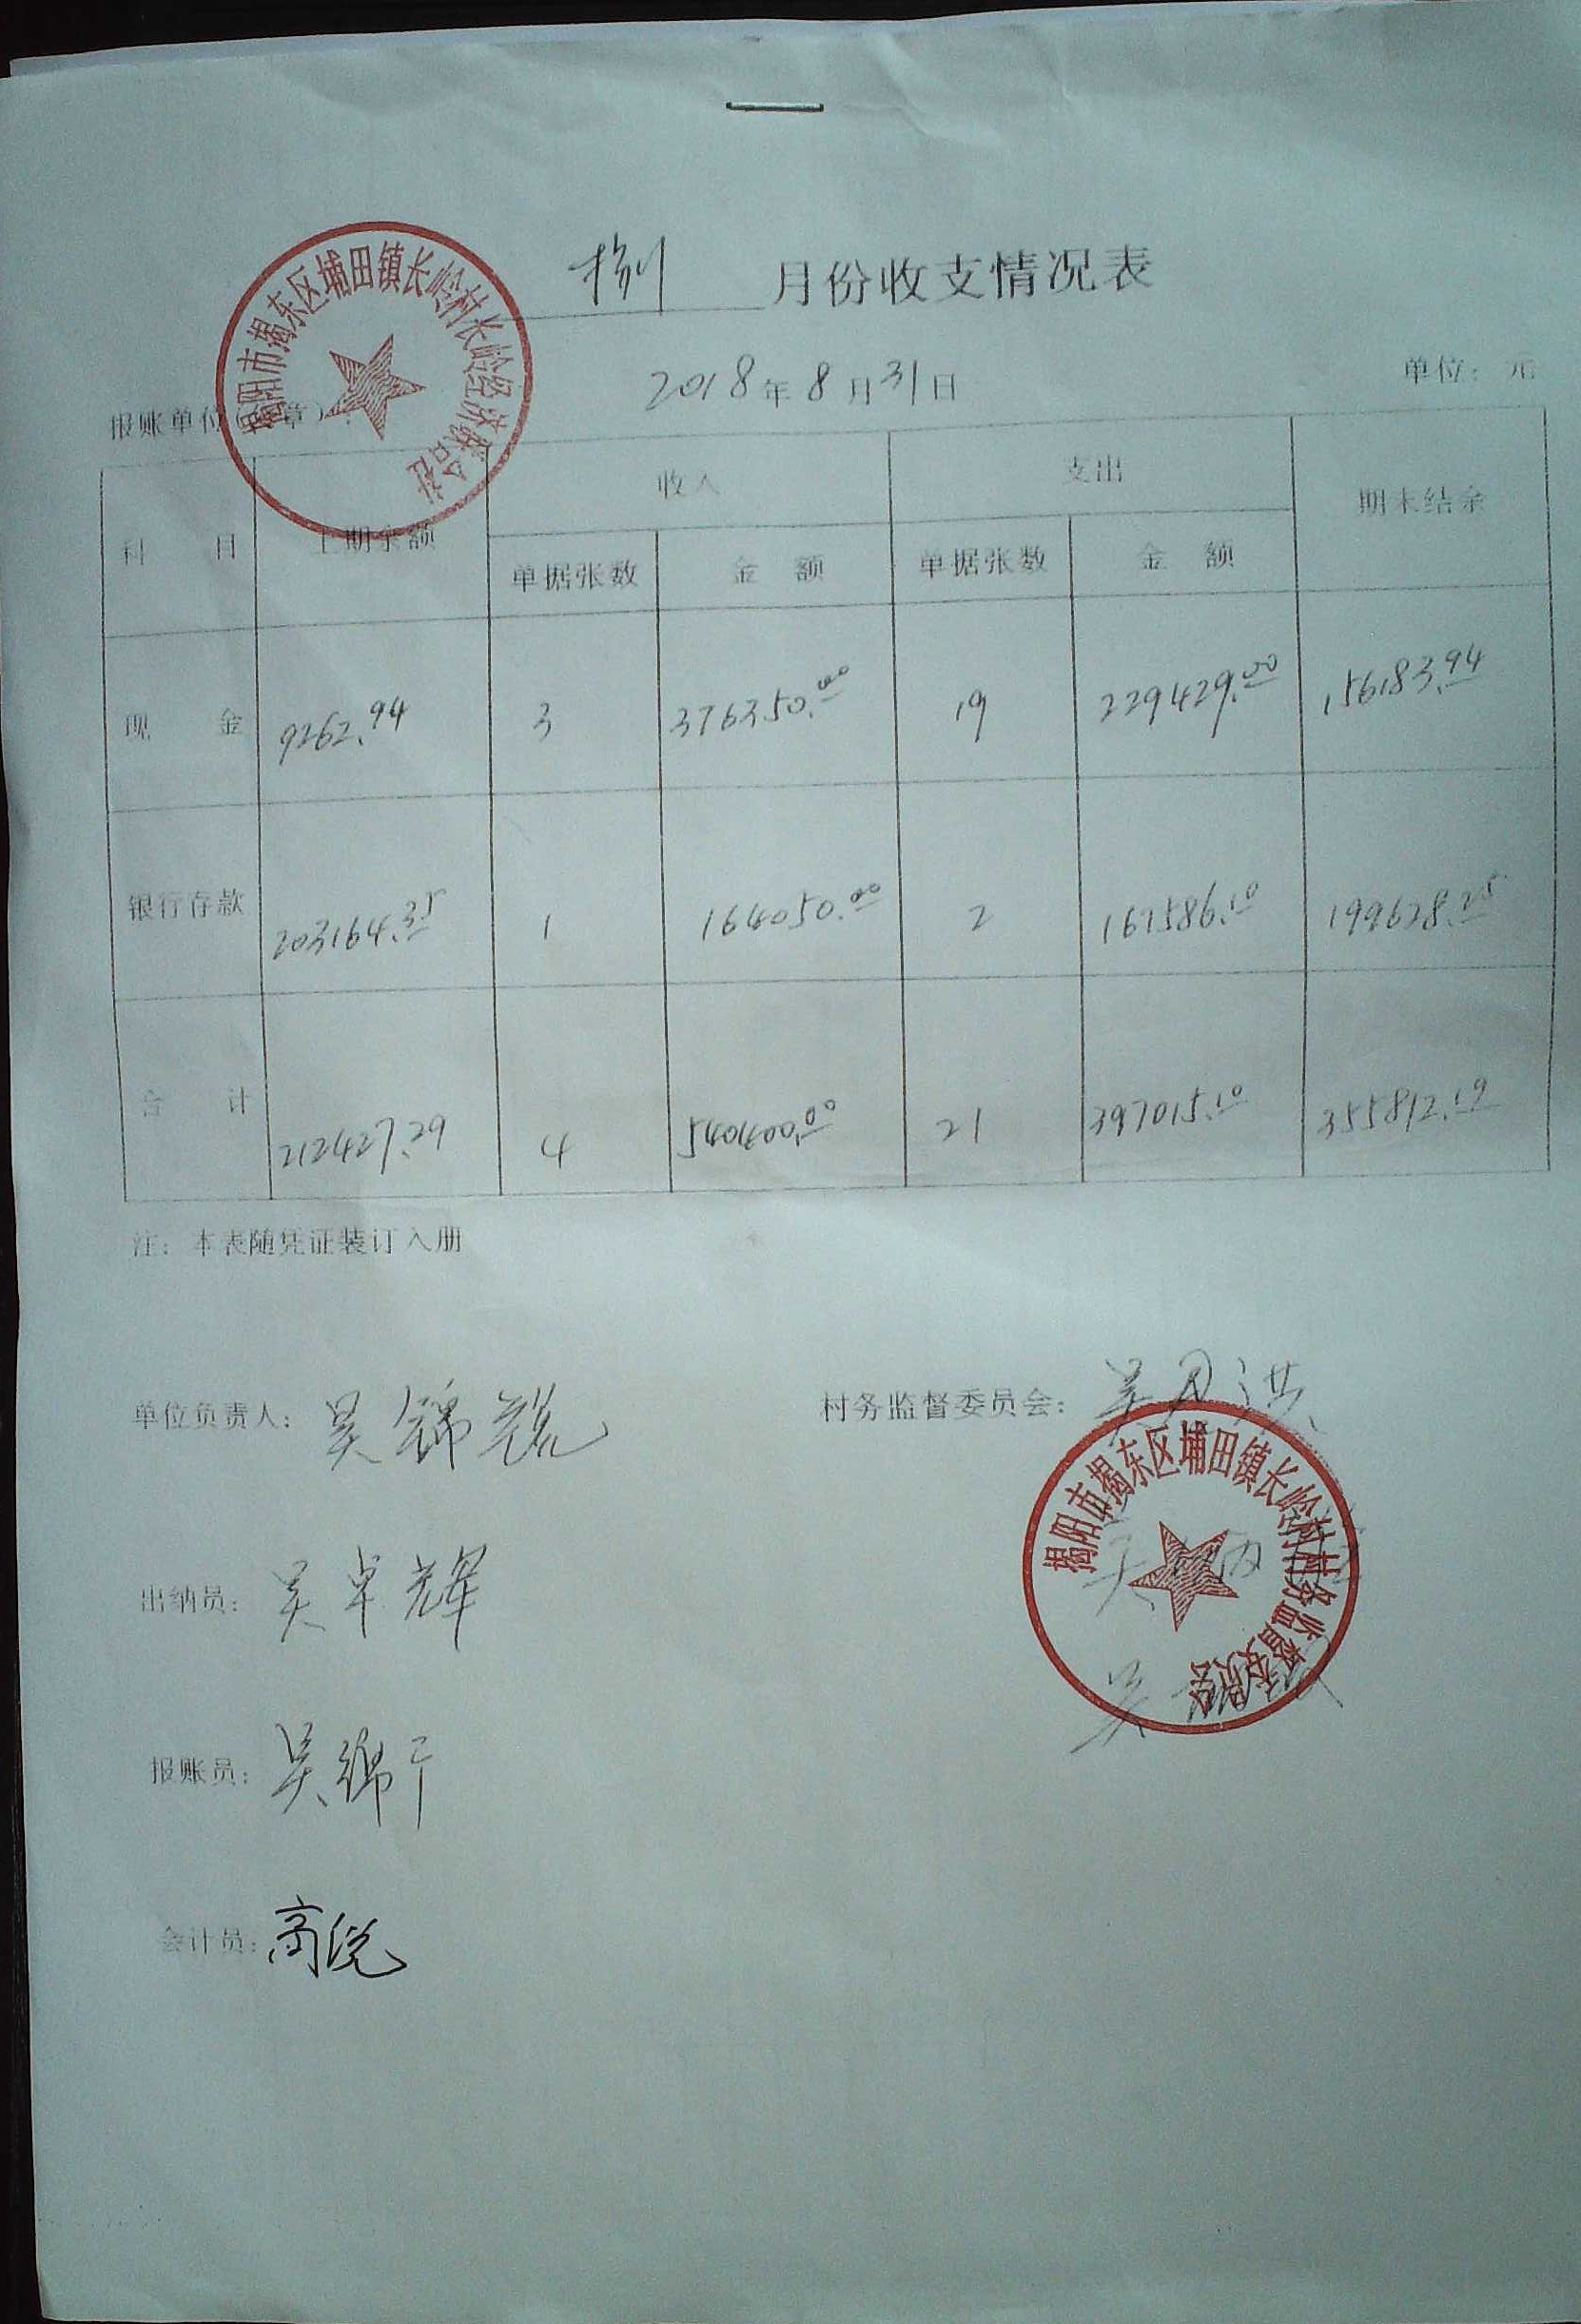 捌 月份收支情况表
2018年8月31日
单位：元
报账单位（盖章）：
揭阳市揭东区埔田镇长岭村长岭经济联合社
科目 上期余额 收入 支出 期末结余
单据张数 金额 单据张数 金额
现金 9262.94 3 376350.00 19 229429.00 156183.94
银行存款 203164.35 1 164050.00 2 167586.10 199628.25
合计 212427.29 4 540400.00 21 397015.10 355812.19
注：本表随凭证装订入册
单位负责人：吴锦
村务监督委员会：吴 洪
揭阳市揭东区埔田镇长岭村村务监督委员会
出纳员：吴卓辉
吴
报账员：吴
吴
会计员：高悦